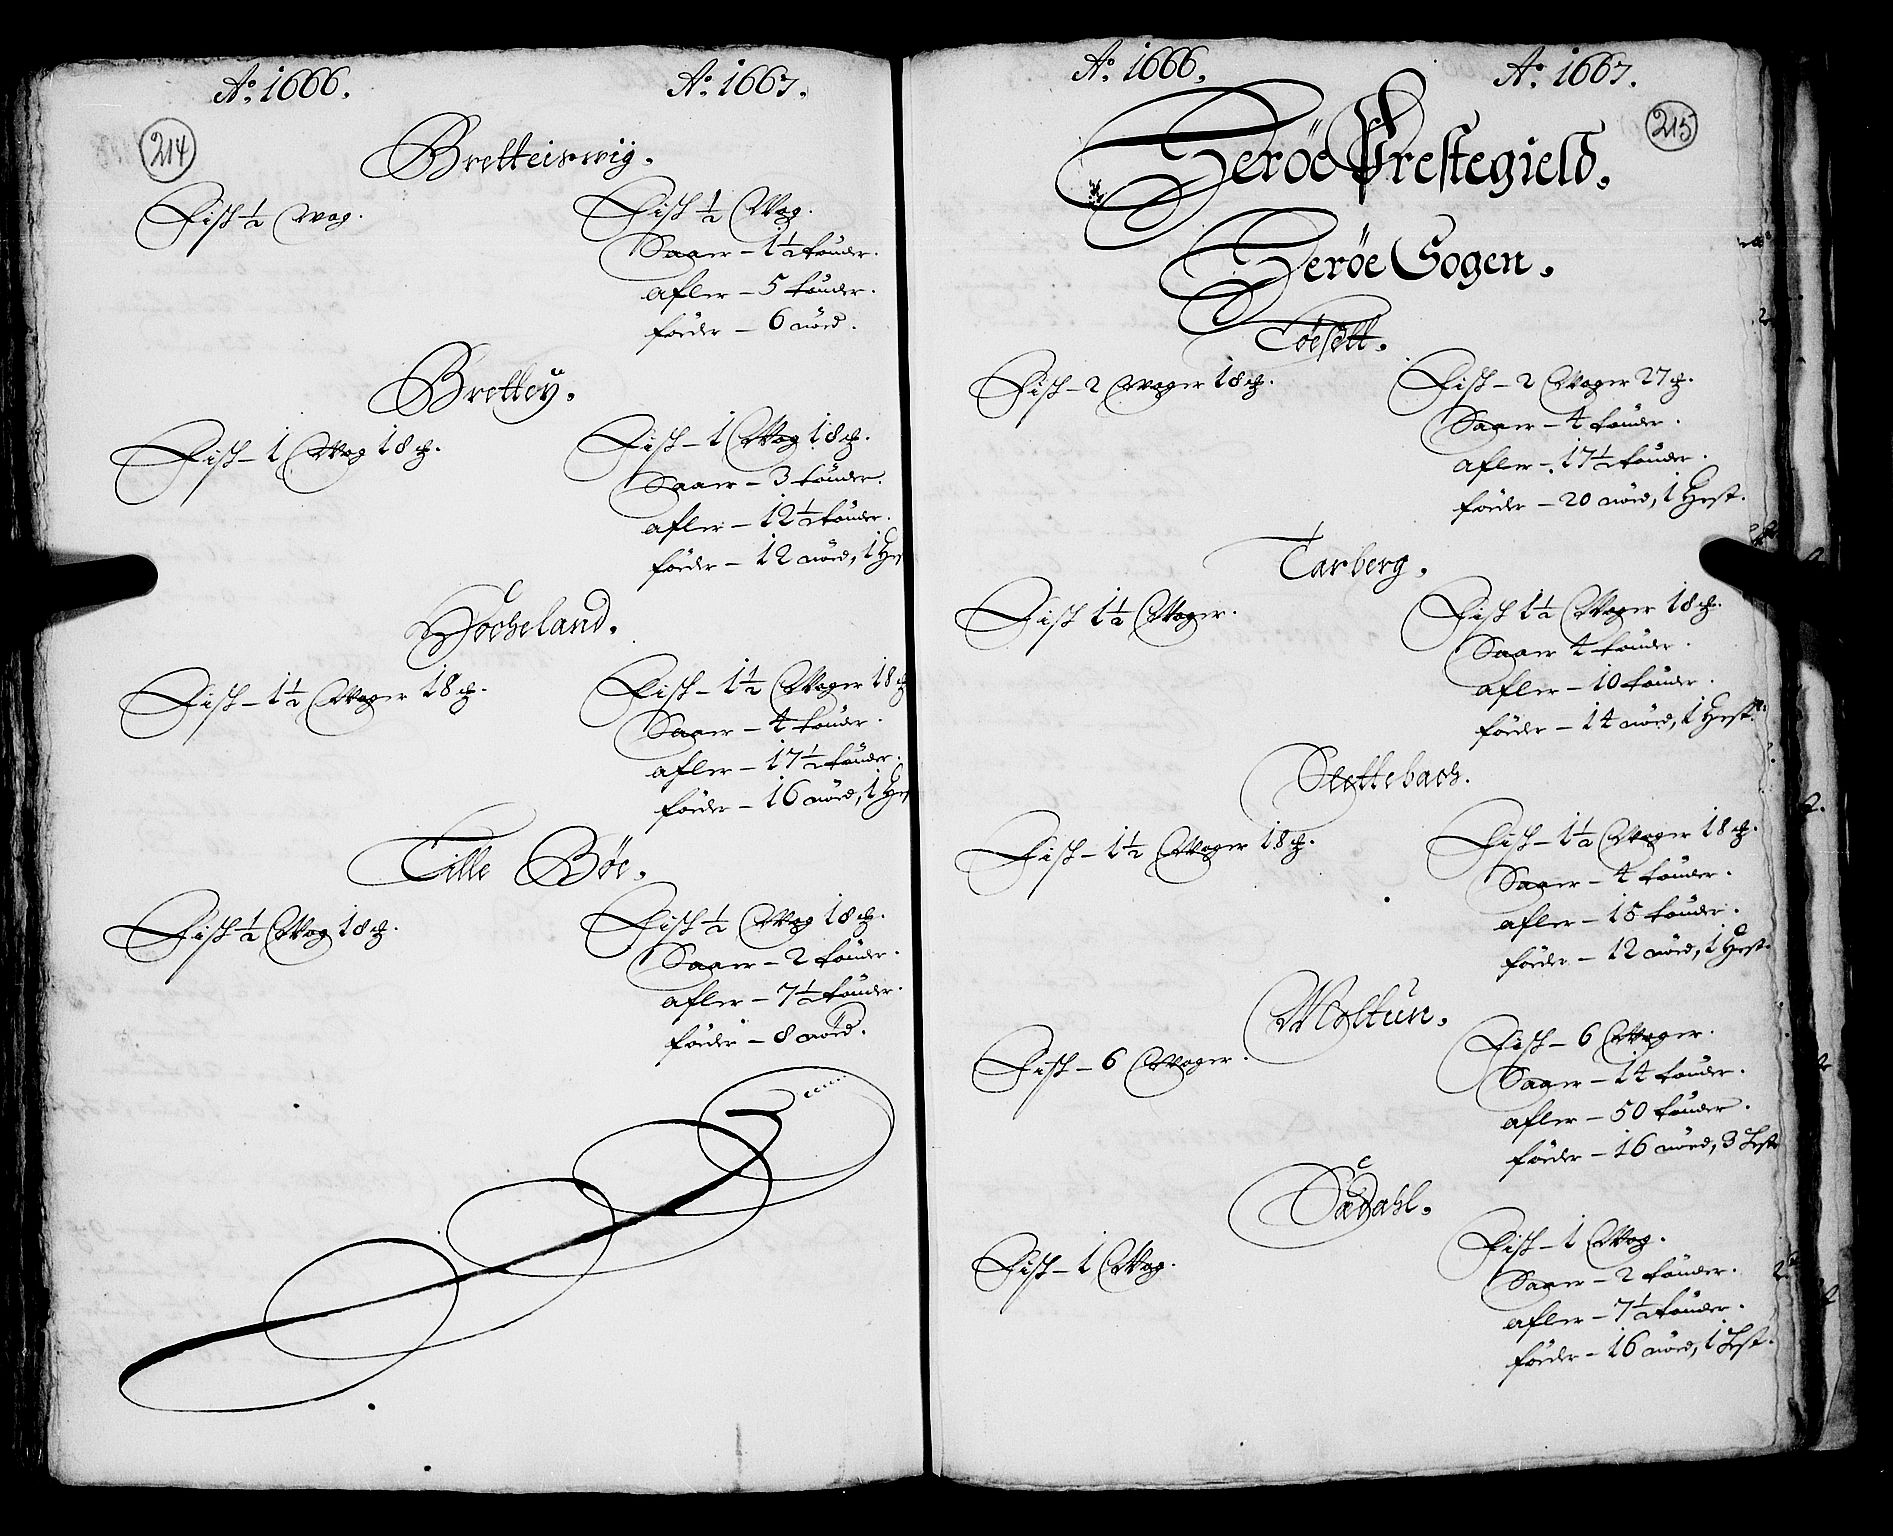 Aº. 1666. Aº. 1667.
214
Bretteiswig.
Fisk ½ wog.
Fisk ½ Wog.
Saar – 1½ tønder.
afler – 5 tønder.
føder – 6 nöed.
Brettey.
Fisk – 1 Wog 18 ℔.
Fisk – 1 Wog 18 ℔.
Saar – 3 tønder.
afler – 12½ tønder.
føder – 12 nöed, 1 Hes
Hocheland.
Fisk – 1½ Woger 18 ℔.
Fisk – 1½ Woger 18 ℔
Saar – 4 tønder.
afler – 17½ tønder.
føder – 16 nöed, 1 Hes
Tille Böe.
Fisk ½ Wog 18 ℔.
Fisk ½ Wog 18 ℔.
Saar – 2 tønder.
afler – 7½ tønder.
føder – 8 nöed.
Aº. 1666. Aº. 1667.
215
Heröe Prestegield.
Heröe Sogen.
Töesett.
Fisk – 2 woger 18 ℔.
Fisk – 2 Woger 27 ℔.
Saar – 4 tønder.
afler – 17½ tønder.
føder – 20 nöed, 1 Hest.
Tarberg.
Fisk 1½ Woger.
Fisk 1½ Woger 18 ℔.
Saar 4 tønder.
afler – 10 tønder.
føder – 14 nöed, 1 Hest.
Slettebach.
Fisk – 1½ Woger 18 ℔.
Fisk – 1½ Woger 18 ℔.
Saar – 4 tønder.
afler – 15 tønder.
føder – 12 nöed, 1 Hest.
Moltun.
Fisk – 6 Woger.
Fisk – 6 Woger.
Saar – 14 tønder.
afler – 50 tønder.
føder – 16 nöed, 3 Hest
Sædahl.
Fisk – 1 Wog.
Fisk – 1 Wog.
Saar – 2 tønder.
afler – 7½ tønder.
føder – 16 nöed, 1 Hest.